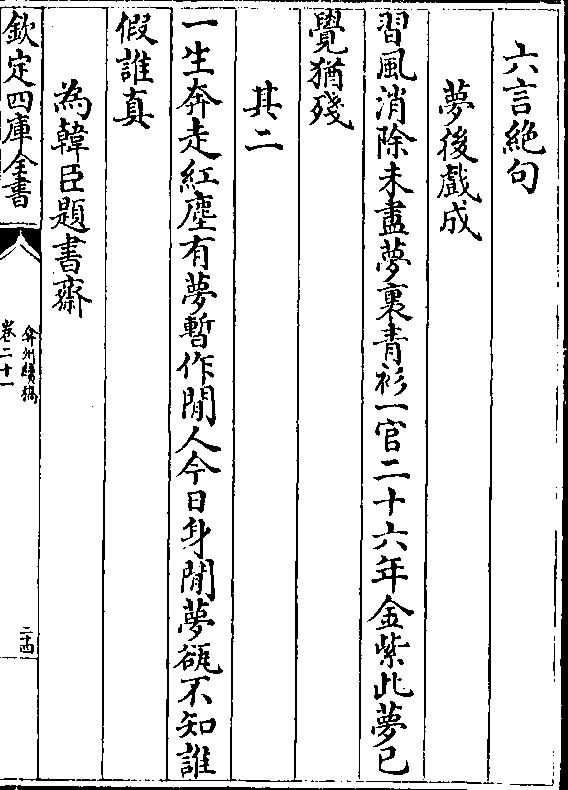 六言絶句
夢後戲成
習風消除未盡夢裏青衫一官二十六年金紫此夢已
覺猶殘
其二
一生奔走紅塵有夢暫作閒人今日身閒夢秪不知誰
假誰真
為韓臣題書齋
欽定四庫全書
弇州續稿
卷二十一
二十四